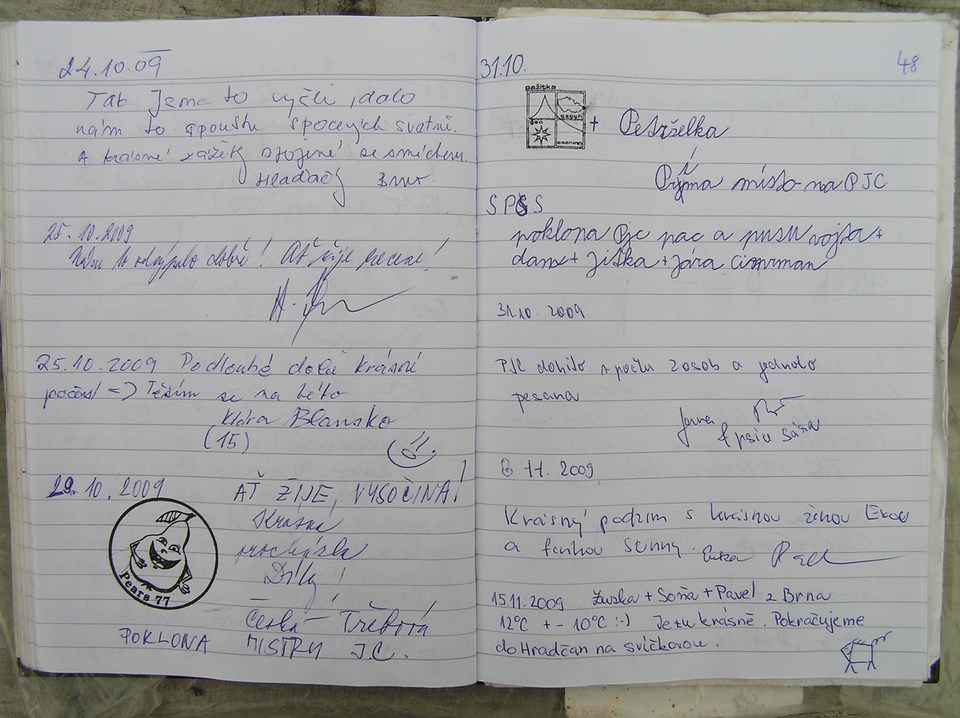 24.10.09
Tak jsme to vyšli, dalo
nám to spoustu spocených svatně.
A krásné zážitky spojené se smíchem.
Hlaďáci Brno.
25.10.2009
Nám to odsýpalo dobře! Ať žije pecené!
25.10.2009 Podlouhé době krásné
počasí => Těším se na léto
Klára Blansko
(15)
29.10.2009
AŤ ŽIJE, VYSOČINA!
Krásná
procházka
Díky!
Česká Třebová
POKLONA MISTRU J.C.
Peara 77
48
31.10.
pažitka
+ Petrželka
Prýma místo na PJC
SPGS
poklona Pjc pac a pusu vojta+
dane+ Jitka + Jára Cimrman
31.10. 2009
PJC dobito v počtu 2 osob a jednoho
pesana
Jana
& psiu Sára
8.11.2009
Krásný podzim s krásnou ženou Evou
a fenkou Sunny.
15.11.2009 Zuzka + Soňa + Pavel z Brna
12°C +- 10°C :-) Je tu krásně. Pokračujeme
do Hradčan na svíčkovou.